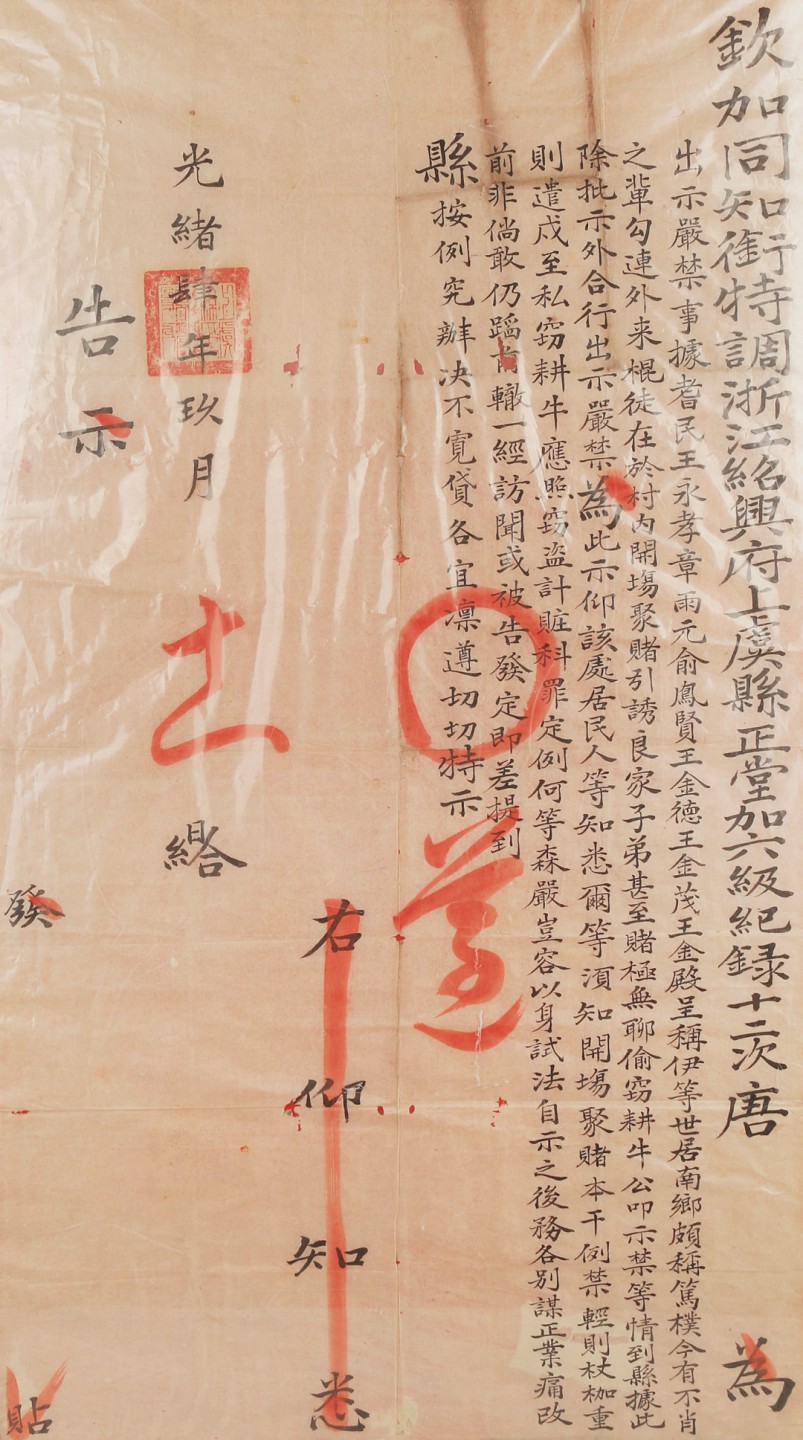 欽加同知銜特調浙江紹興府上虞縣正堂加六級紀錄十二次唐 為
出示嚴禁事據耆民王永孝章雨元俞鳳賢王金德王金茂王金殿呈稱伊等世居南鄉頗稱篤樸今有不肖
之輩勾連外來棍徒在於村內開塲聚賭引誘良家子弟甚至賭極無聊偷窃耕牛公叩示禁等情到縣據此
除批示外合行出示嚴禁為此示仰該處居民人等知悉爾等須知開塲聚賭本干例禁輕則杖枷重
則遣戍至私窃耕牛應照窃盜計賍科罪定例何等森嚴豈容以身試法自示之後務各別謀正業痛改
前非倘敢仍蹈前轍一經訪聞或被告發定即差提到
縣按例究辦决不寬貸各宜凜遵切切特示
遵
右仰知悉
光緒肆年玖月 十一 日
告示
發 貼